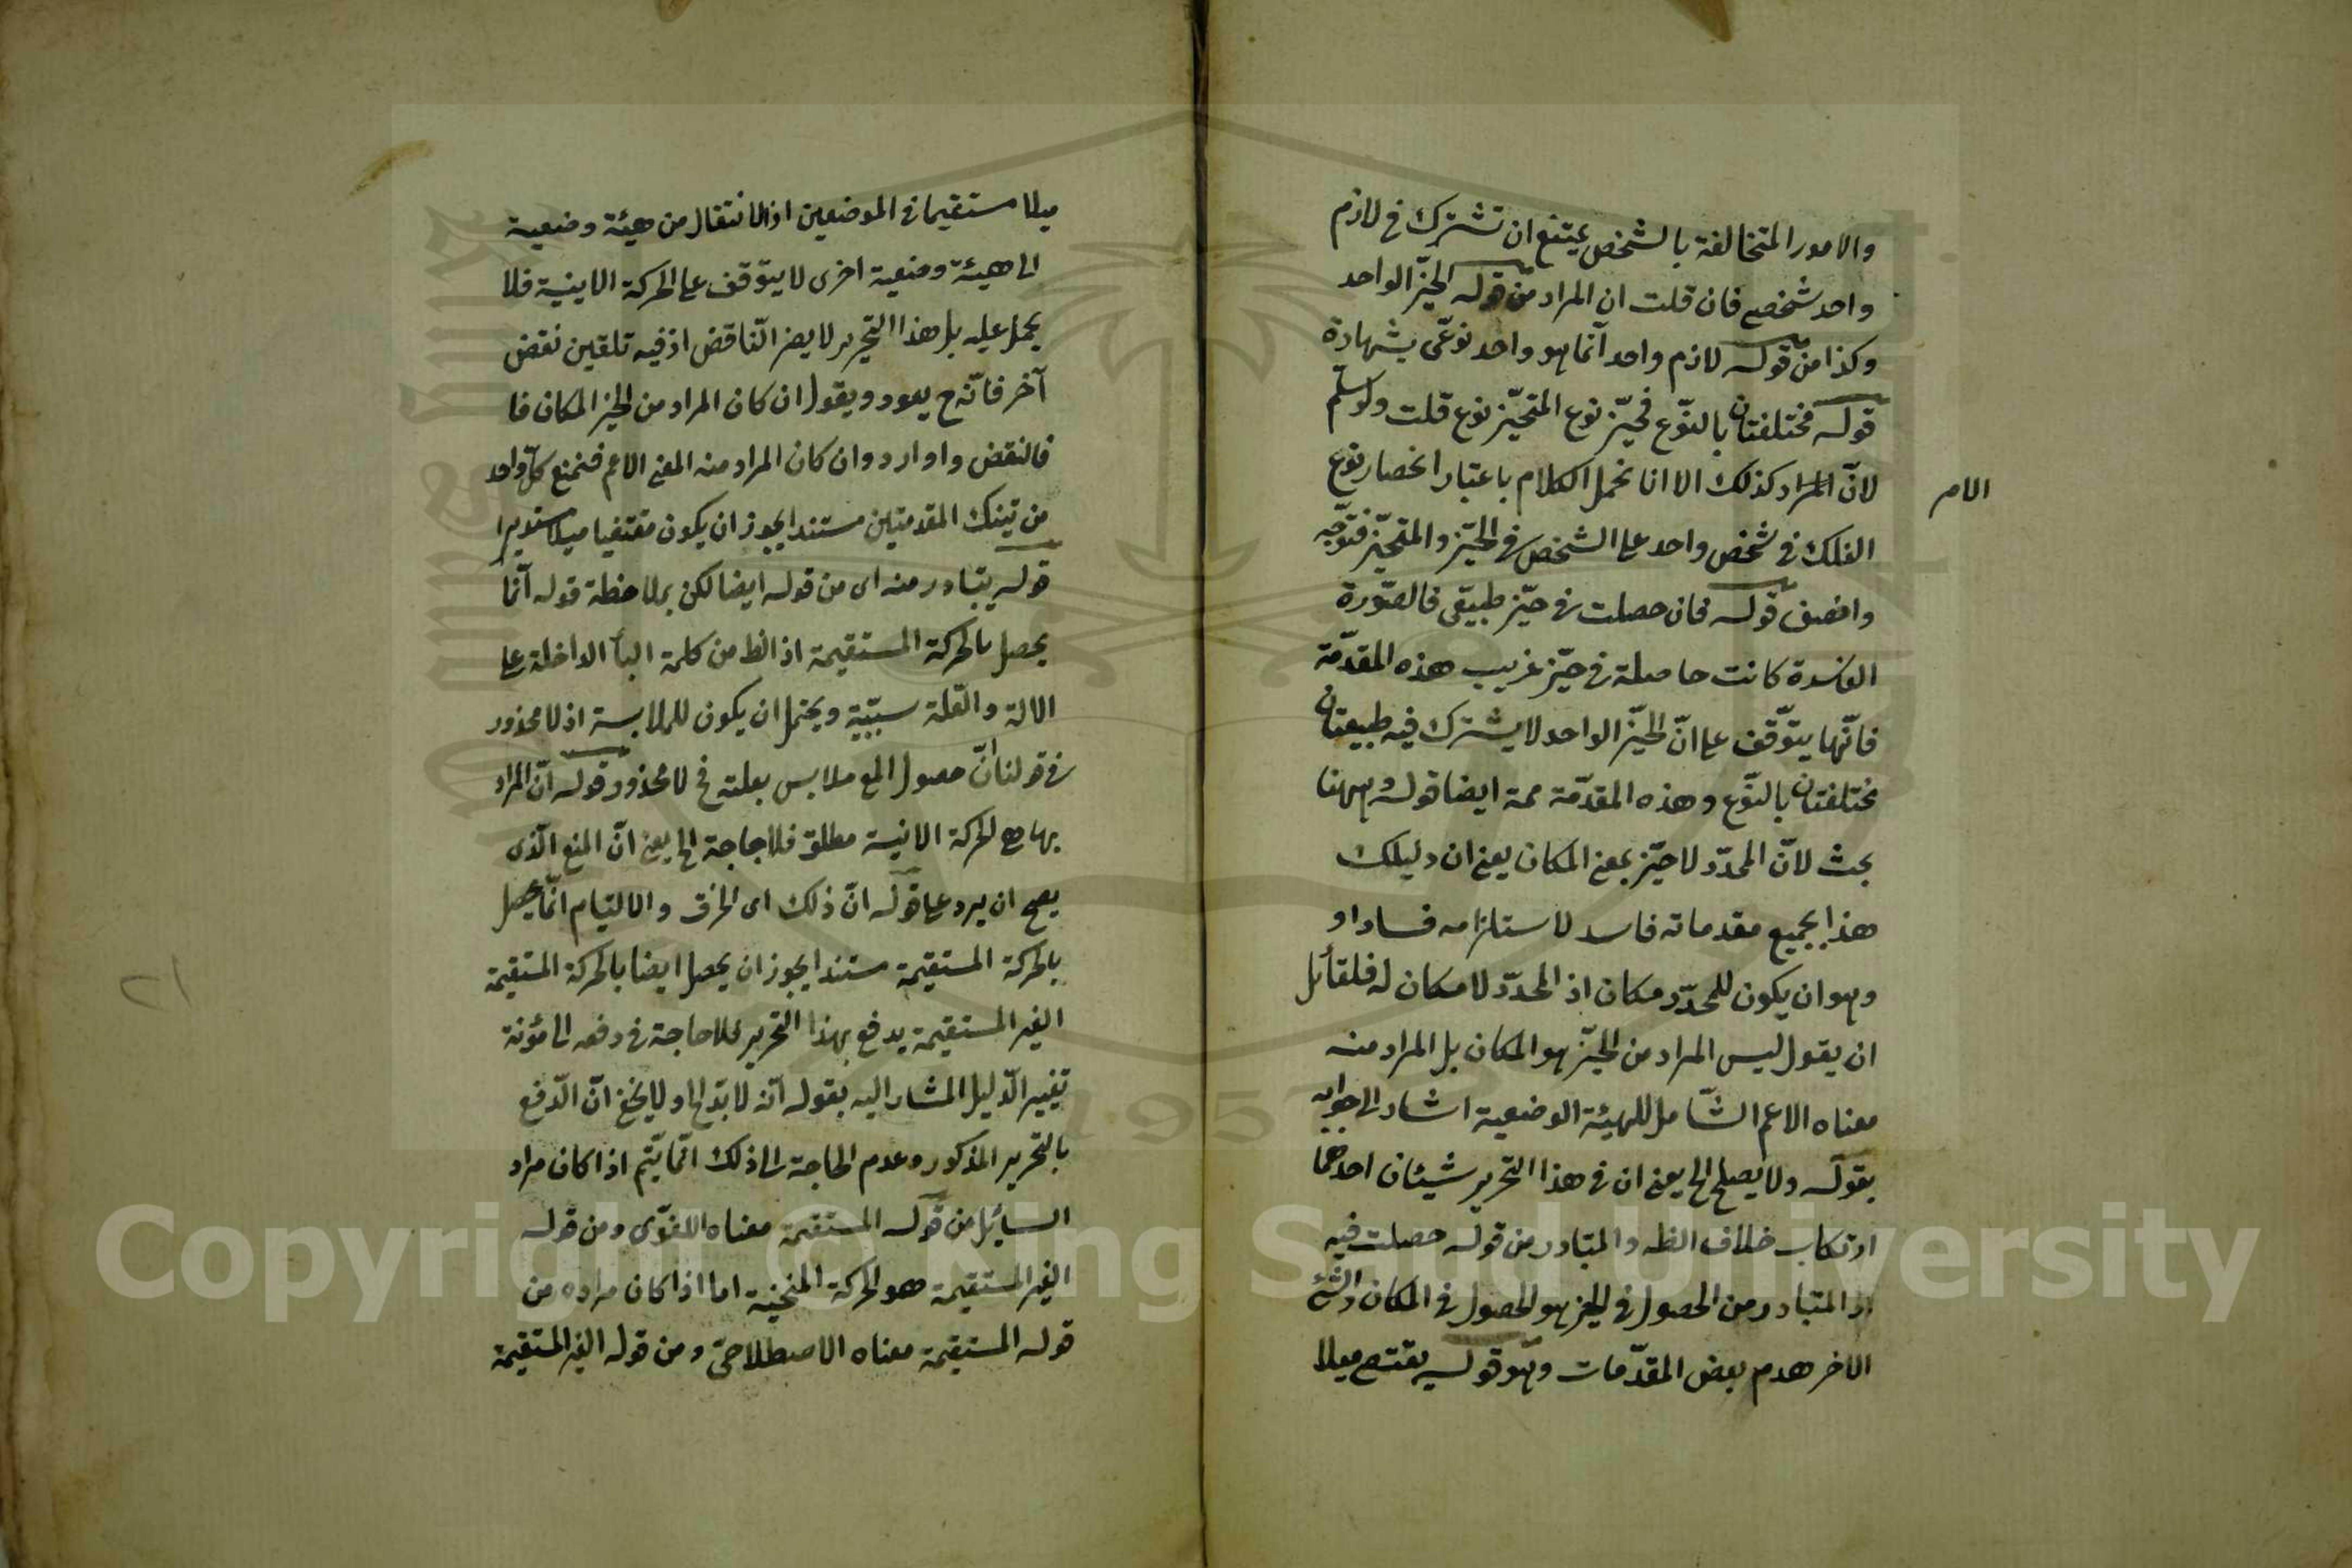 والامور المتخالفة بالشخص يمتنع ان تشترك في لازم
واحد شخصي فان قلت ان المراد من قوله الحيّز الواحد
وكذا من قوله لازم واحد انّما هو واحد نوعّى بشهادة
قوله مختلفتان بالنوّع فحيّز نوع المتحيّز نوع قلت ولو سلّم
لانّ المراد كذلك الا انا نحمل الكلام باعتبار انحصار نوع
الامر
الفلك في شخص واحد على الشخص في الحيّز والمتحيّز فتوجّه
وانصف قوله فان حصلت في حيّز طبيعّى فالصّورة
الفاسدة كانت حاصلة في حيّز غريب هذه المقدّمة
فانّها يتوّقف على انّ الحيّز الواحد لا يشترك فيه طبيعتان
مختلفتان بالنوّع وهذه المقدّمة ممة ايضا قوله وههنا
بحث لانّ المحدّد لا حيّز بمعنى المكان يعنى ان دليلك
هذا بجميع مقدماته فاسد لاستلزامه فسادا و
وهو ان يكون للمحدّد مكان اذ المحدّد لا مكان له فلقائل
ان يقول ليس المراد من الحيّز هو المكان بل المراد منه
معناه الاعم الشّامل للهيئة الوضعية اشار الى جوابه
بقوله ولا يصلح الخ يعنى ان في هذا التحرير شيئان احدهما
ارتكاب خلاف الظه والمتبادر من قوله حصلت فيه
اذ المتبادر من الحصول في الحيز هو الحصول في المكان والشئ
الاخر هدم بعض المقدّمات وهو قوله يقتضى ميلا
ميلا مستقيما في الموضعين اذ الانتقال من هيئة وضعية
الى هيئة وضعية اخرى لا يتوّقف على الحركة الاينية فلا
يحمل عليه بل هذا التحرير لا يضر النّاقض اذ فيه تلقين نقض
آخر فانّه ح يعود ويقول ان كان المراد من الحيز المكان فا
فالنقض وا وارد وان كان المراد منه المعنى الاعم فنمنع كلّ واحد
من تينك المقدمتين مستندا بجواز ان يكون مقتضيا ميلا مستديرا
قوله يتبادر منه اى من قوله ايضا لكن بملاحظة قوله انّما
يحصل بالحركة المستقيمة اذ الظ من كلمة البأ الداخلة على
الالة والعّلة سببّية ويحتمل ان يكون للملابسة اذ لا محذور
في قولنا انّ حصول المع ملابس بعلته فح لا محذور قوله انّ المراد
بها هى الحركة الانية مطلق فلا حاجة الخ يعنى انّ المنع الّذى
يصح ان يرد على قوله انّ ذلك اى الخرق والالتيام انّما يحصل
بالحركة المستقيمة مستندا بجواز ان يحصل ايضا بالحركة المستقيمة
الغير المستقيمة يدفع بهذا التحرير فلا حاجة في دفعه الى مؤنة
تغيير الدّليل المشار اليه بقوله انّه لا بدّ الخ ولا يخفى انّ الدّفع
بالتحرير المذكور وعدم الحاجة الى ذلك انّما يتّم اذا كان مراد
السايئل من قوله المستقيمة معناه اللغوّى ومن قوله
الغير المستقيمة هو الحركة المنحنية اما اذا كان مراده من
قوله المستقيمة معناه الاصطلاحىّ ومن قوله الغير المستقيمة
٢١
Copyright © King Saud University
1957